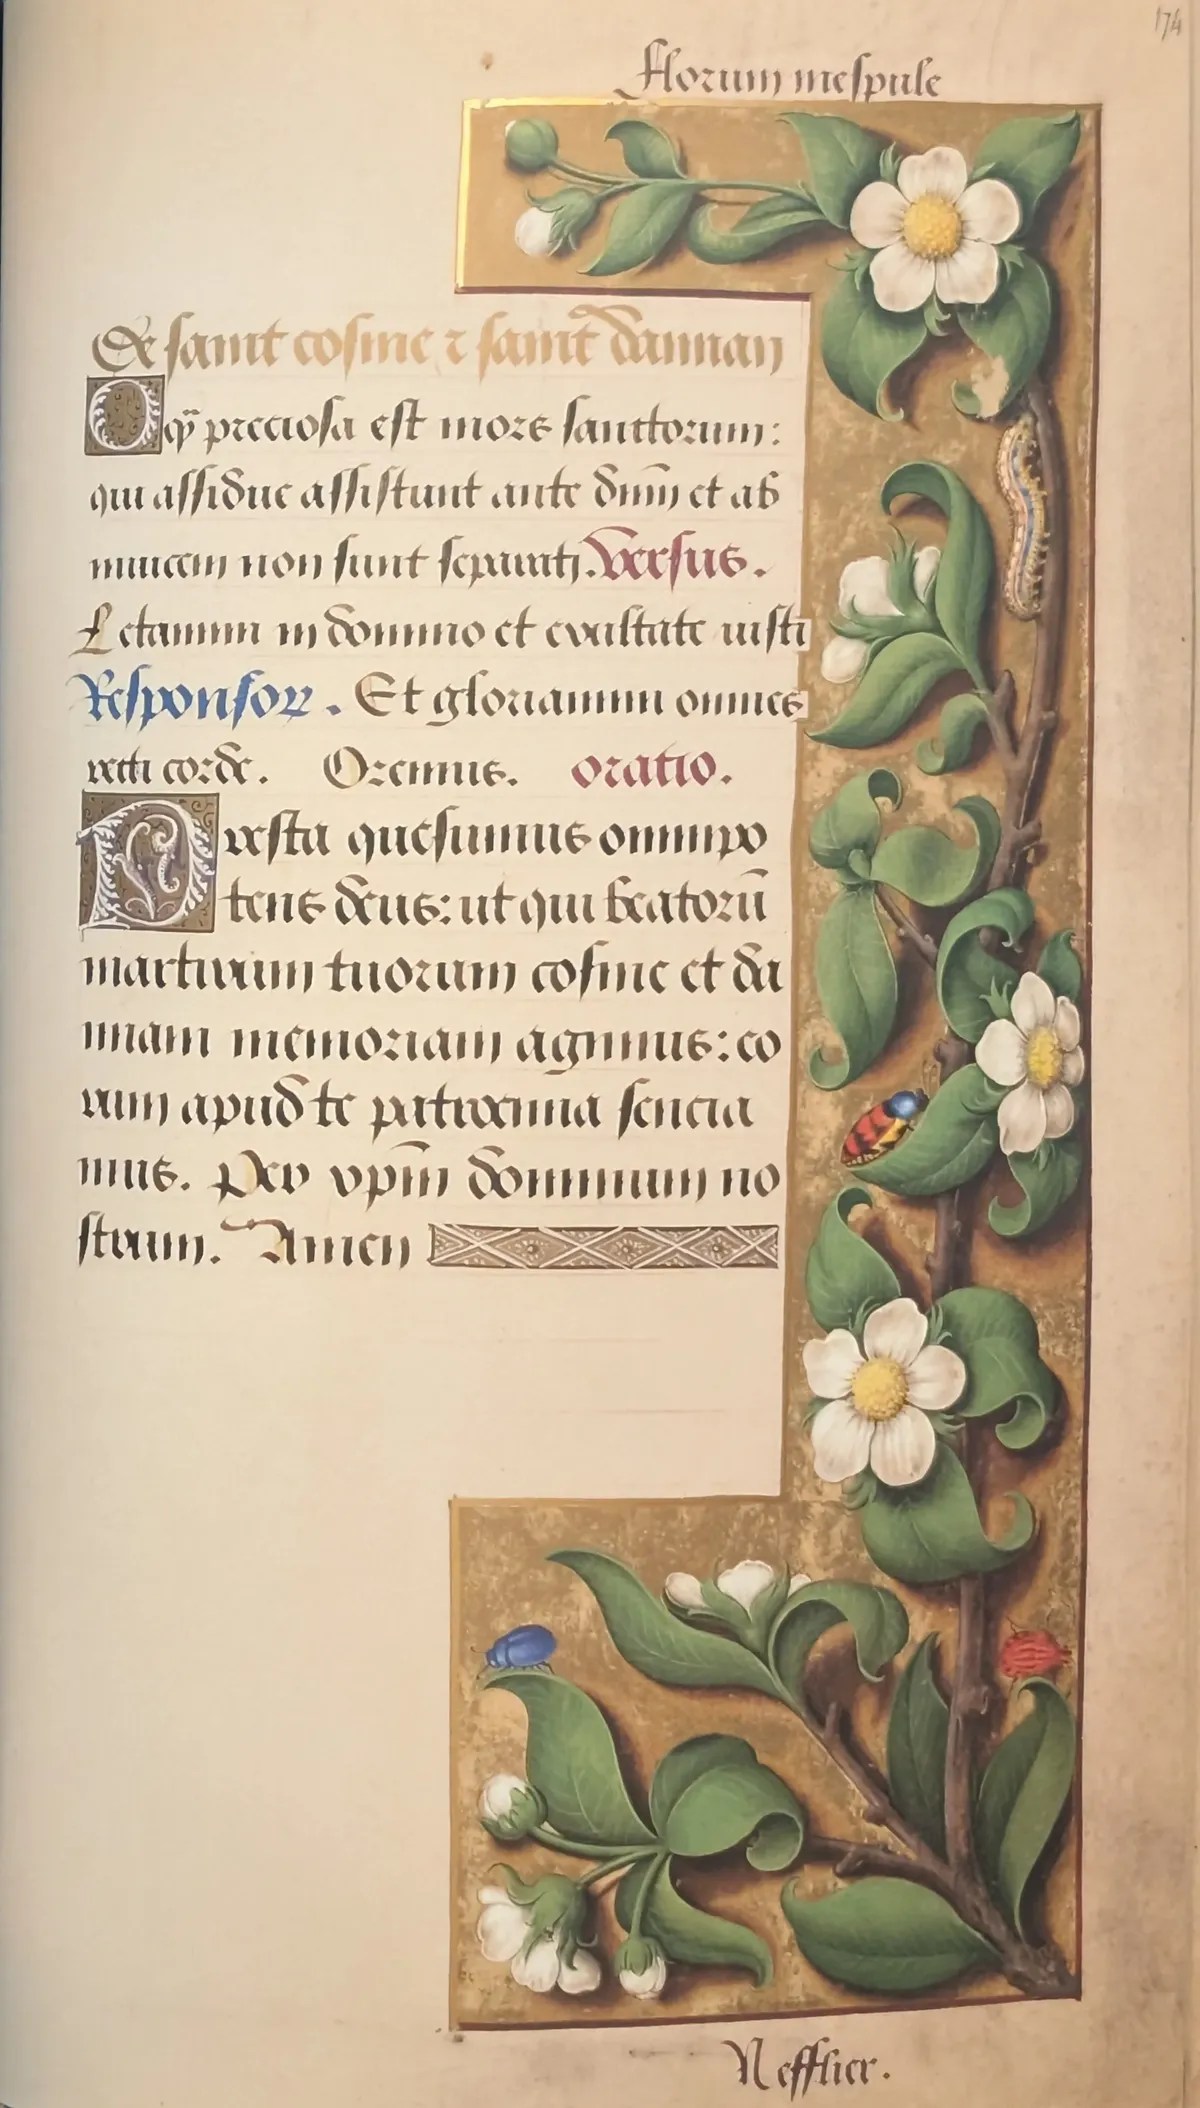 174
Florum mespule
De saint cosme ⁊ saint damian
O q̃ preciosa est mors sanctorum:
qui assidue assistunt ante dñm et ab
inuicem non sunt separati. Versus.
Letamini in domino et exultate iusti
Responsor. Et gloriamini omnes
recti corde. Oremus. oratio.
Presta quesumus omnipo
tens deus: ut qui beatorũ
martirum tuorum cosme et da
miani memoriam agimus: eo
rum apud te patrocinia sencia
mus. Per xpm̃ dominum no
strum. Amen
Nefflier.